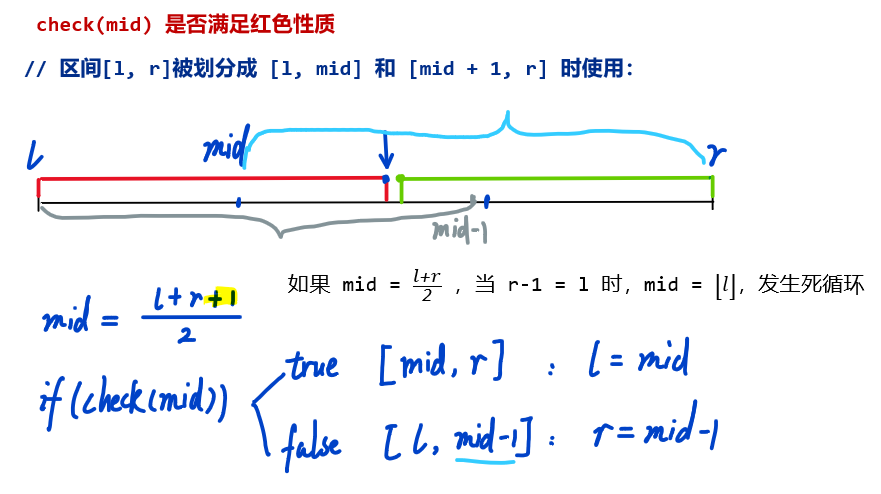 check(mid) 是否满足红色性质
// 区间[l, r]被划分成 [l, mid] 和 [mid + 1, r] 时使用:
l mid r
mid-1
如果 mid = l+r/2 , 当 r-1 = l 时, mid = ⌊l⌋, 发生死循环
mid = l+r+1/2
true [mid, r] : l = mid
if(check(mid))
false [l, mid-1] : r = mid-1